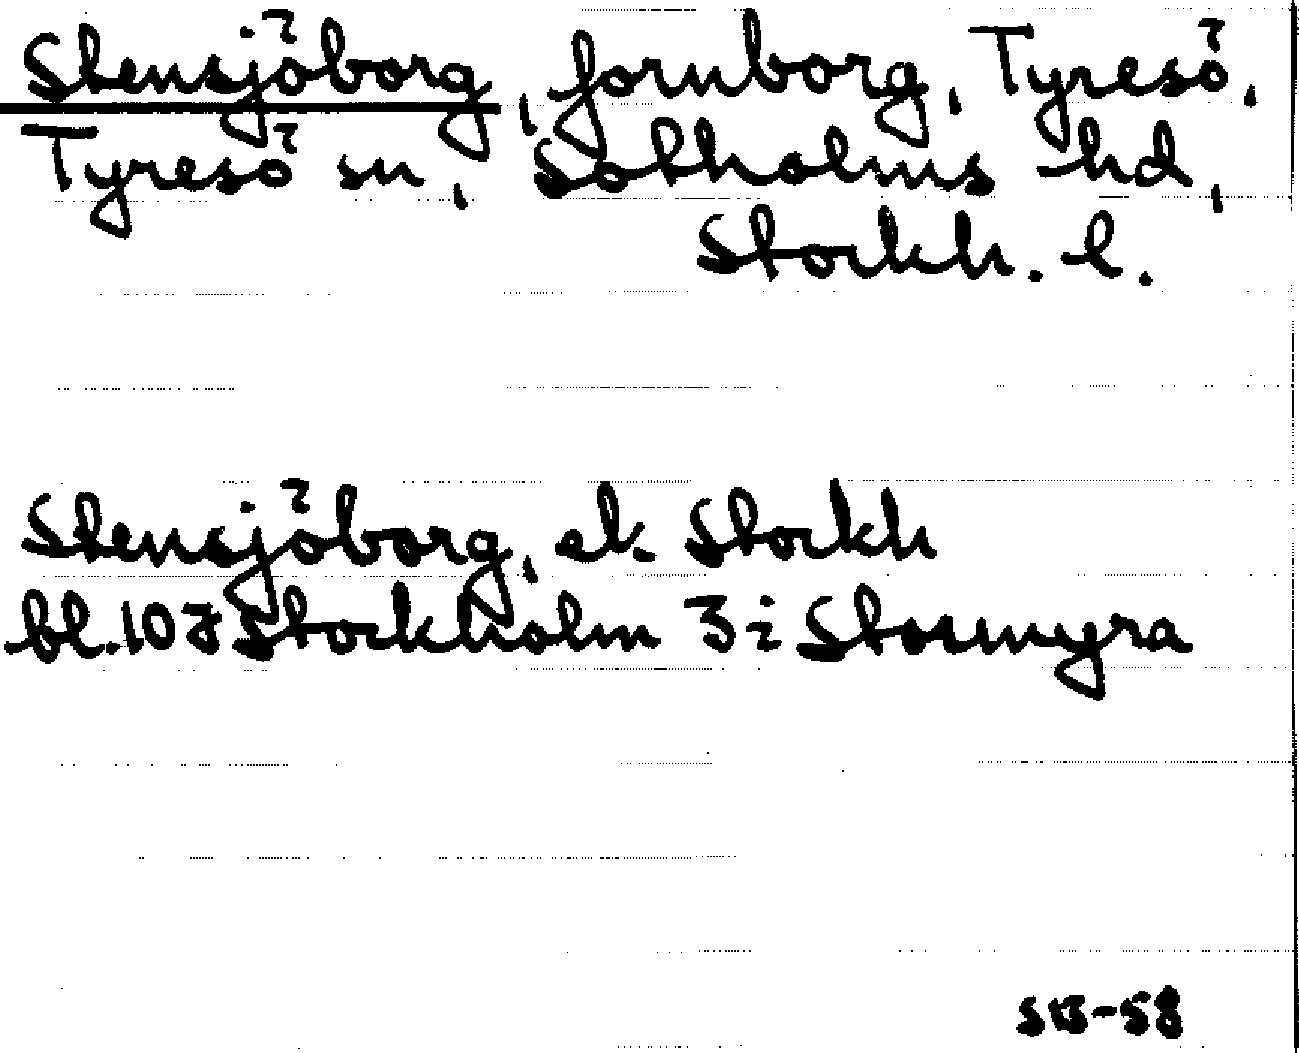 Stensjöborg, fornborg, Tyresö,
Tyresö sn, Sotholms hd,
Stockh. l.
Stensjöborg, ek. Stockh
bl. 10 I Stockholm 3 i Stormyra
SB-58